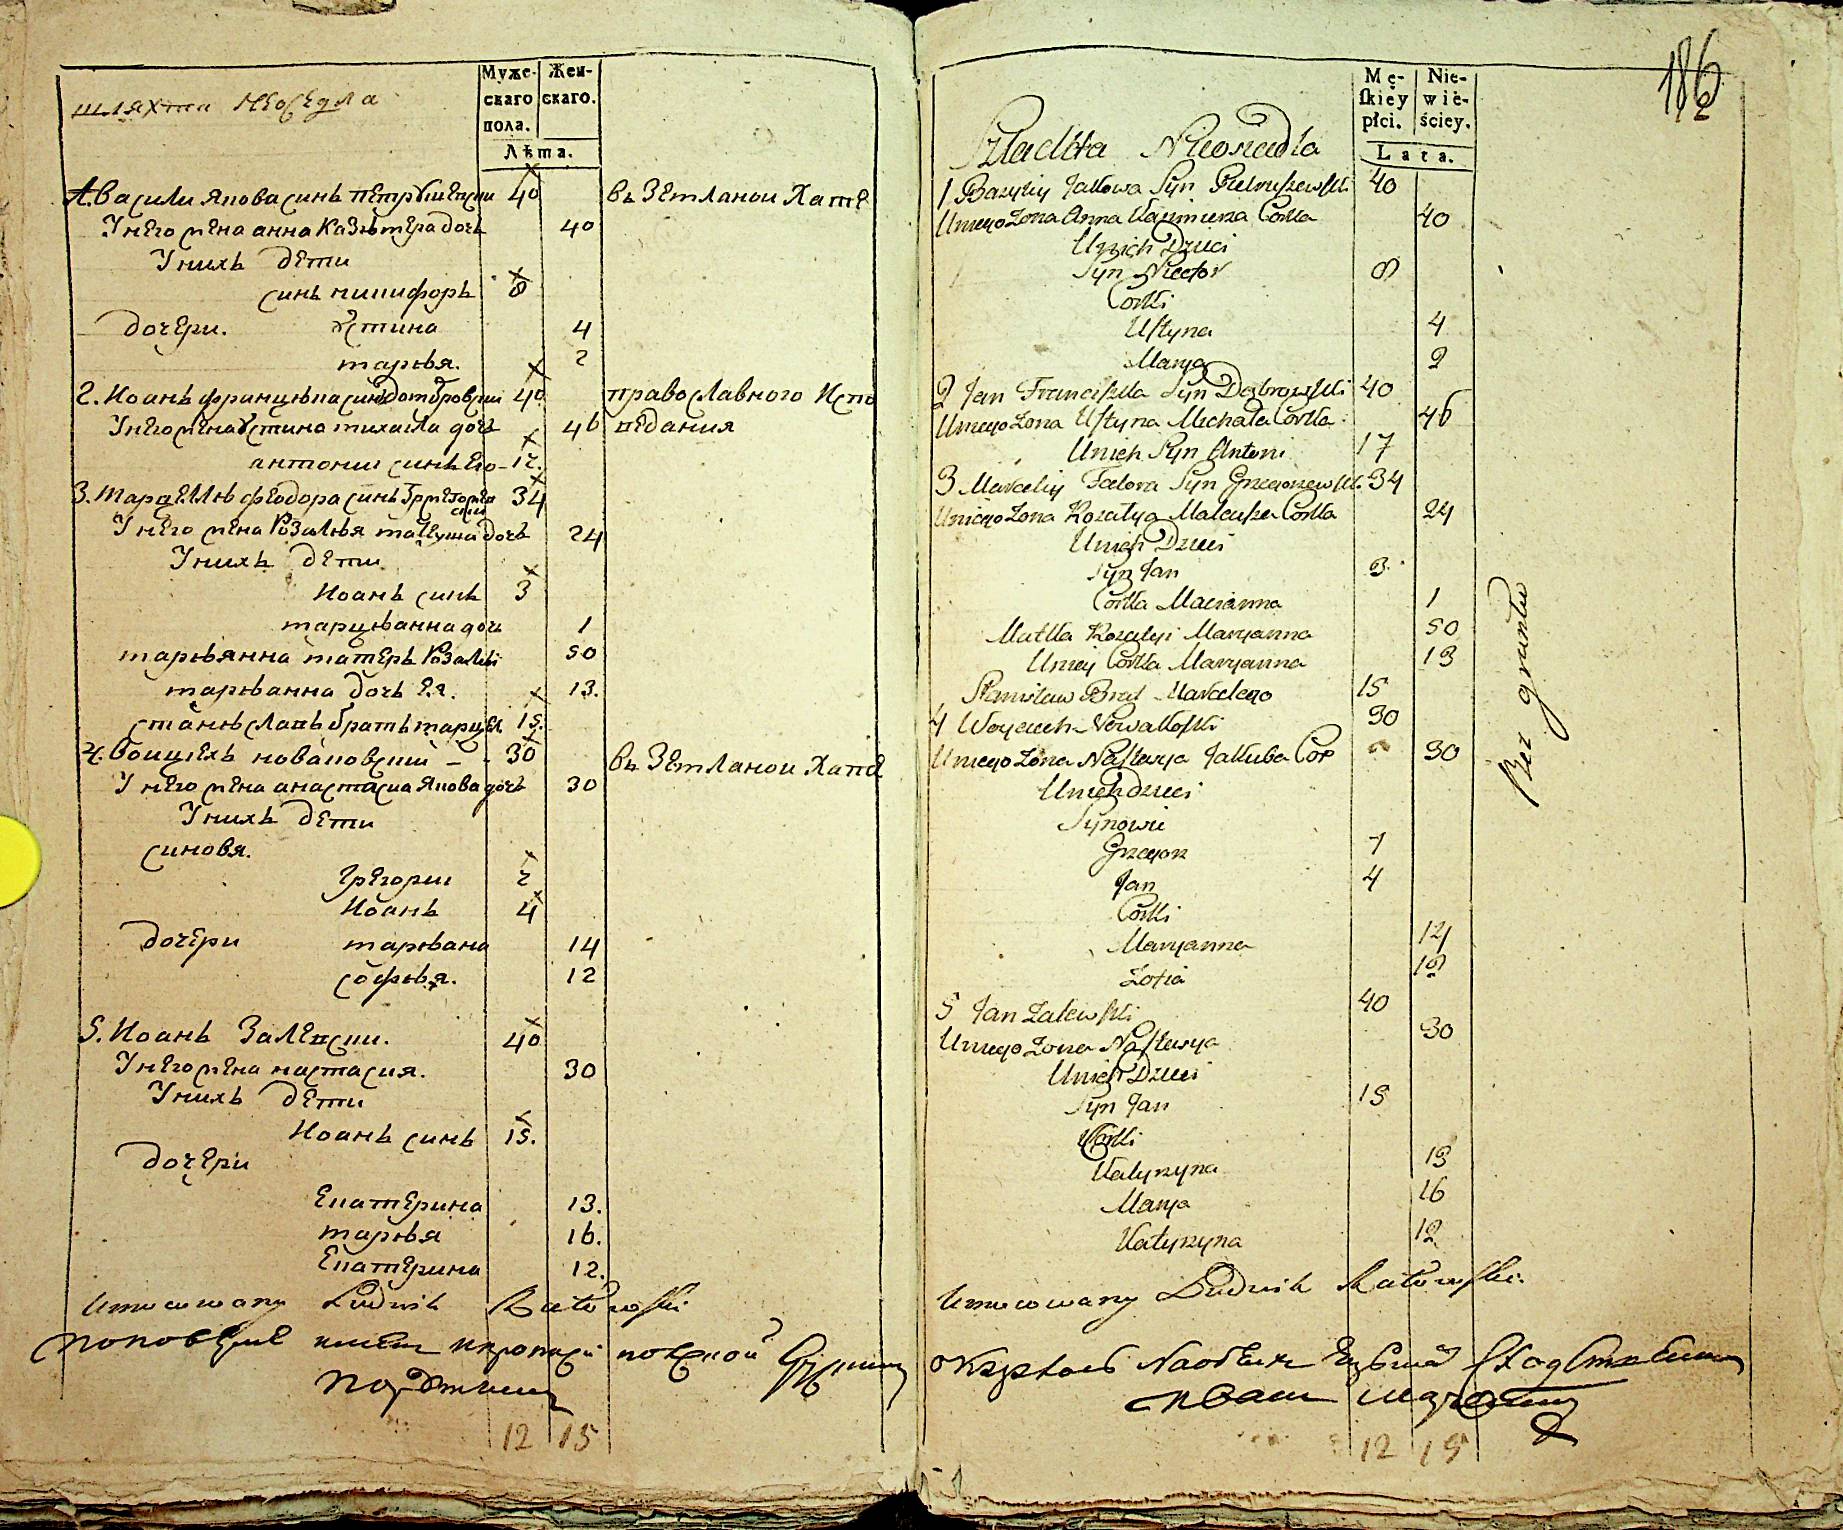 Муже- Жен-
скаго скаго.
пола.
Лѣта.
шляхта неоседла
1. Василии Якова синъ Петрушевски 40 въ Земланои Хате
У него жена анна Казимера дочь 40
У нихъ дети
синъ никифоръ 8
дочери. Устина 4
марья. 2
2. Иоанъ францишка синъ домбровски 40 православного Испо
У него жена Устина михаила дочь 46 ведания
антонии синъ его 17.
3. Марцеллы феодора синъ Гржегоржев 34
ски
У него жена Розалья матеуша дочь 24
У нихъ дети
Иоанъ синъ 3
марцыанна дочь 1
марыянна матеръ Розальи 50
марыанна дочь Ея. 13.
станиславъ братъ марцел. 15.
4. Воицехъ новаковский 30 въ Земланои Хапе
У него жена анастасиа Якова дочь 30
У нихъ дети
синовя.
Грегории 7
Иоанъ 4
дочери марывана 14
софья. 12
5. Иоанъ Залевски. 40
У него жена настасия. 30
У нихъ дети
Иоанъ синъ 15.
дочери
Екатерина 13.
марья 16.
Екатерина 12.
Umocowany Ludwik Rutowski
12 15
186
Mę- Nie-
skiéy wie-
płci. ściey.
Lata.
Szlachta Nieosiadla
1 Bazyliy Jakowa Syn Pietruszewski 40
Uniego Zona Anna Kazimierza Corka 40
Unich Dzieci
Syn Nicefor 8
Corki
Ustyna 4
Marya 2
2 Jan Franciszka Syn Dąbrowski 40
Uniego Zona Ustyna Michała Corka 46
Unich Syn Antoni 17
3 Marceliy Fedora Syn Grzegorzewski 34
Uniego Zona Rozalya Mateusza Corka 24
Unich Dzieci
Syn Jan 3
Corka Marianna 1
Matka Rozalyi Maryanna 50
Uniey Corka Maryanna 13
Stanisław Brat Marcelego 15
4 Woyciech Nowakoski 30
Uniego Zona Nastazya Jakuba Cor 30
Unich dzieci
Synowie
Grzegorz 7
Jan 4
Corki
Maryanna 14
Zofia 12
5 Jan Zalewski 40
Uniego Zona Nastazya 30
Unich Dzieci
Syn Jan 15
Corki
Katyrzyna 13
Marya 16
Katyrzyna 12
Bez gruntu
Umocowany Ludwik Rutowski
12 15